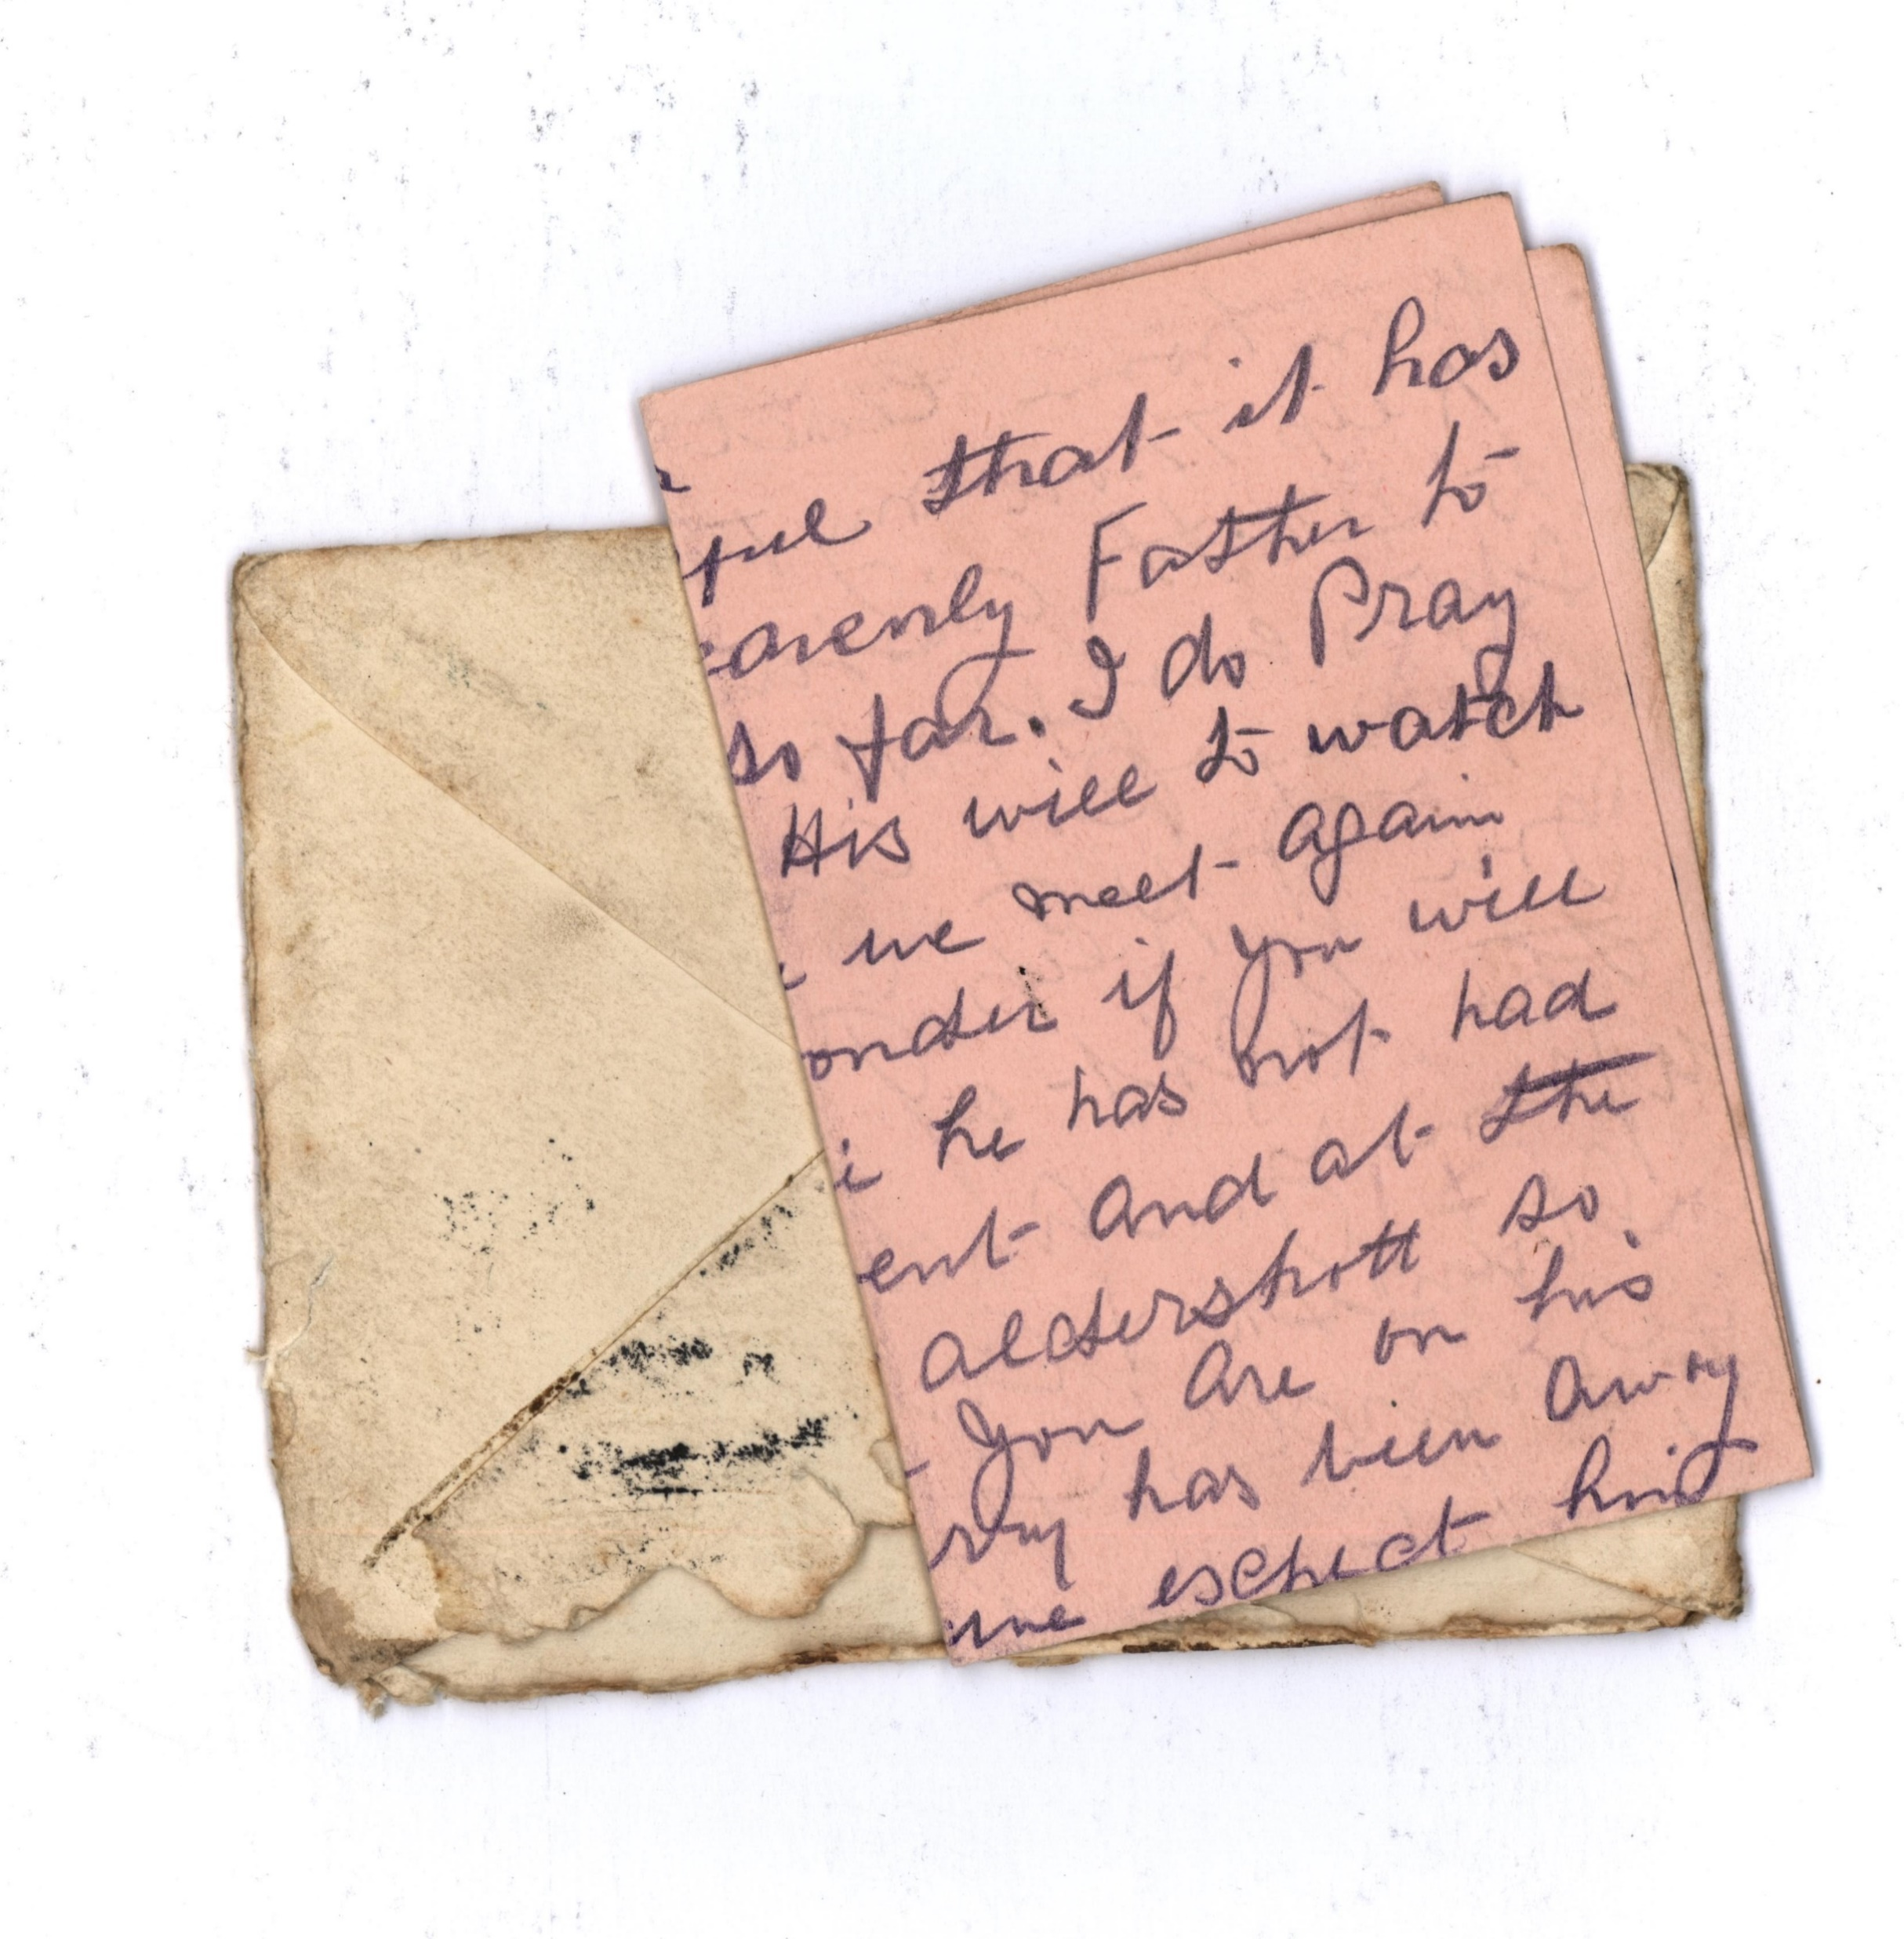 ful that it has
eavenly Father to
so far. I do Pray
His will to watch
we meet again
onder if you will
he has not had
ent and at the
aldershott so
you are on his
has been away
me expect him